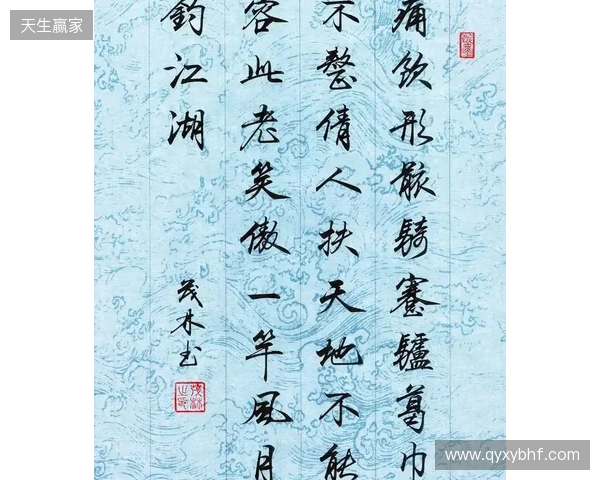 天生赢家
痛饮形骸骑蹇驴葛巾
不整倩人扶天地不能
容此老笑傲一竿风月
钓江湖
茂林书
www.qyxybhf.com